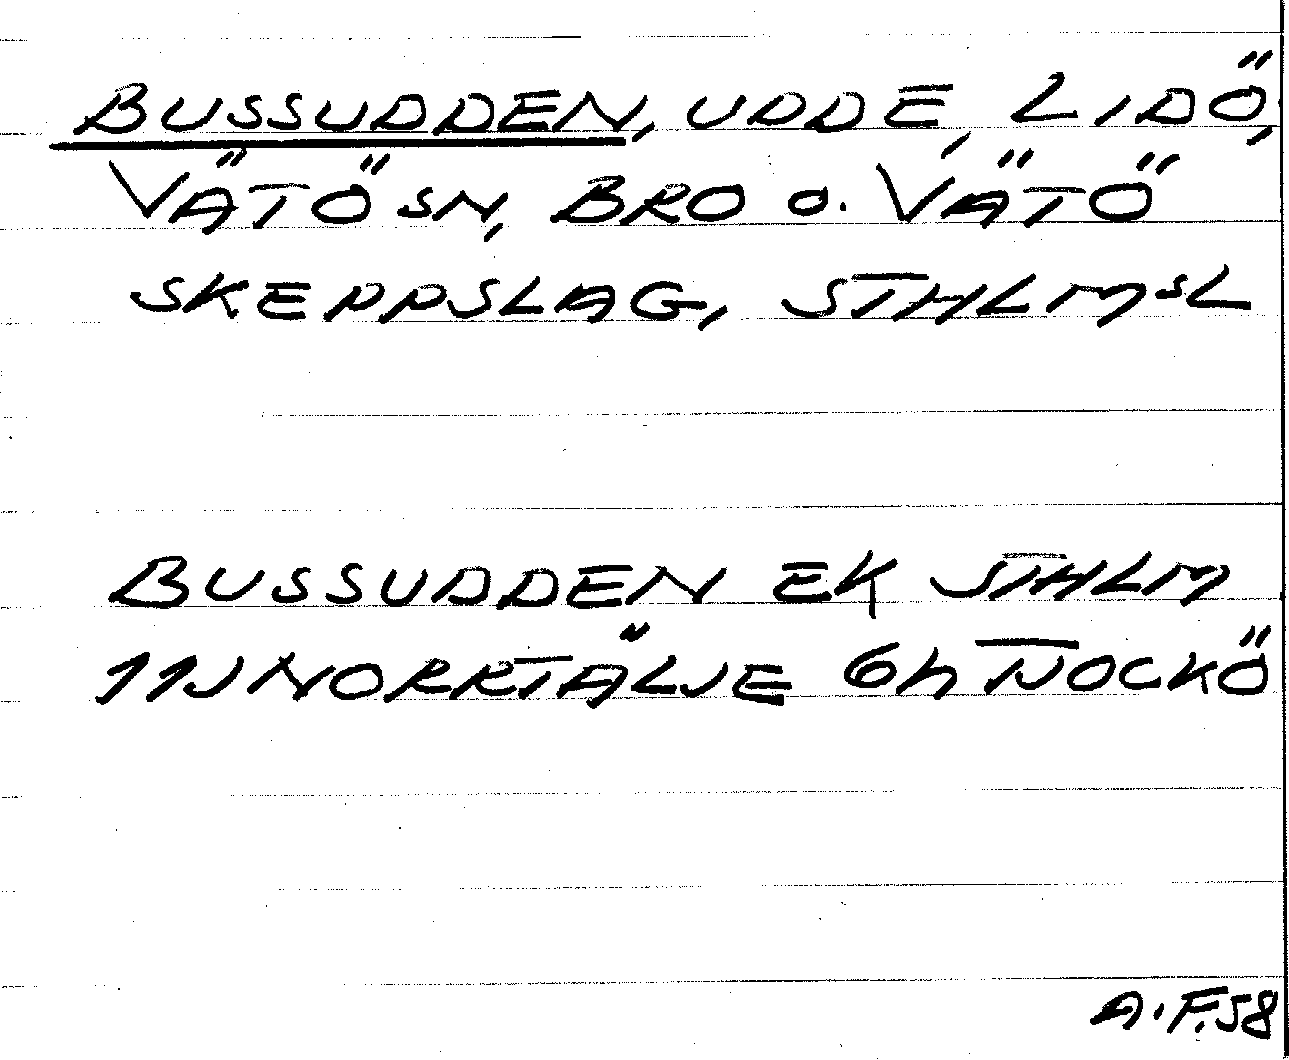 BUSSUDDEN, UDDE, LIDÖ,
VÄTÖ SN, BRO O. VÄTÖ
SKEPPSLAG, STHLMSL
BUSSUDDEN EK STHLM
11J NORRTÄLJE 6h TJOCKÖ
A.F.58